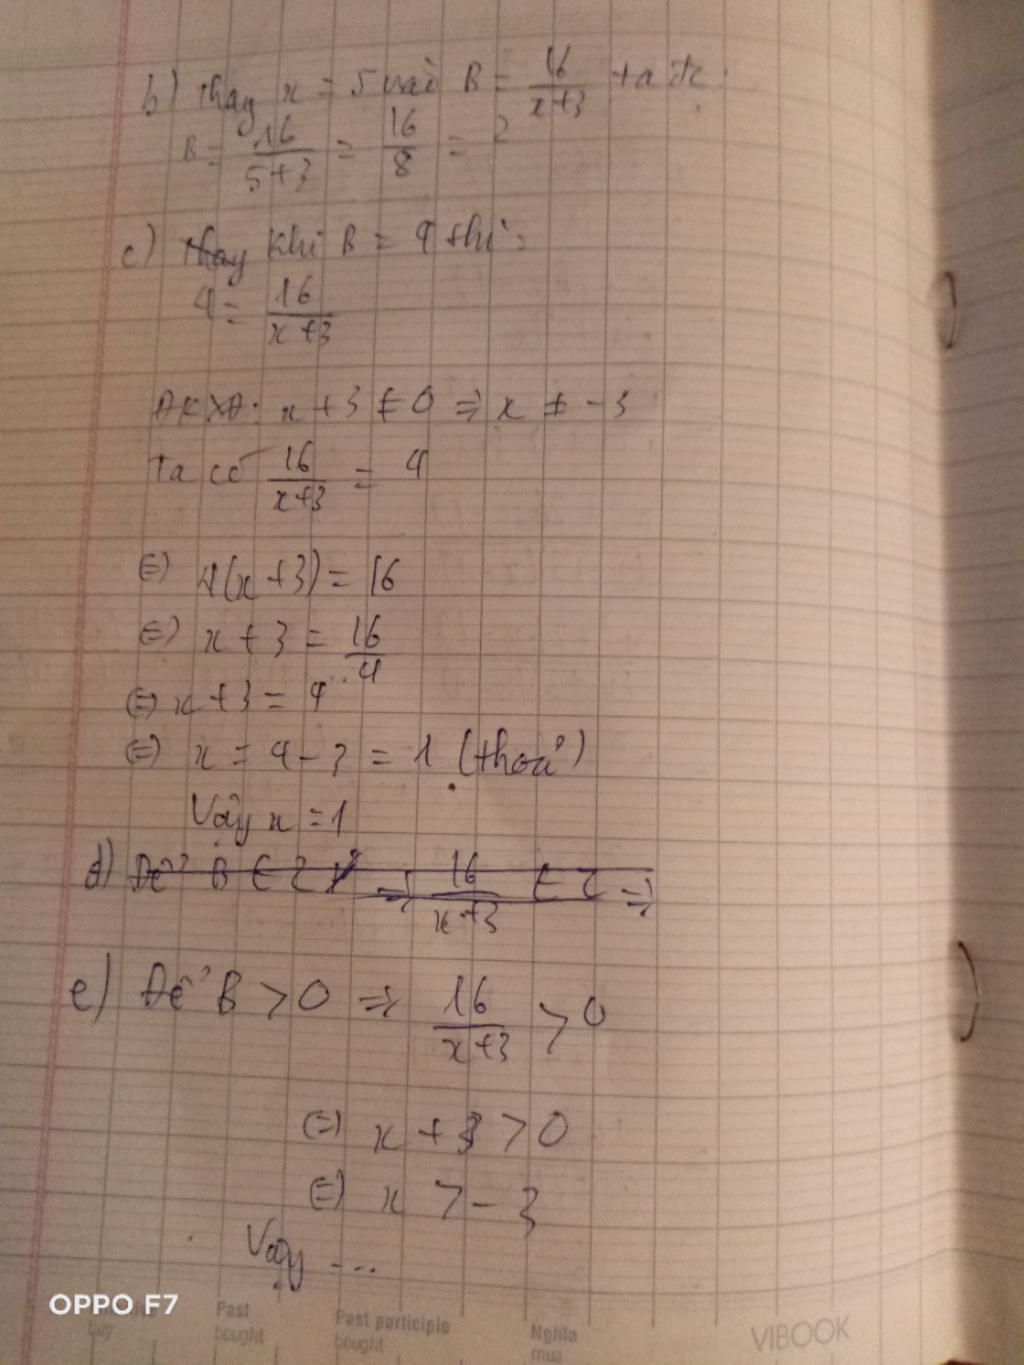 b) thay x = 5 vào B = 16/(x+3) ta đc:
B = 16/(5+3) = 16/8 = 2
c) thay khi B = 4 thì:
4 = 16/(x+3)
ĐKXĐ: x + 3 ≠ 0 ⇒ x ≠ -3
Ta có 16/(x+3) = 4
⇔ 4(x+3) = 16
⇔ x + 3 = 16/4
⇔ x + 3 = 4
⇔ x = 4 - 3 = 1 (thoả)
Vậy x = 1
d) Để B ∈ Z ⇒ 16/(x+3) ∈ Z ⇒
e) Để B > 0 ⇒ 16/(x+3) > 0
⇔ x + 3 > 0
⇔ x > -3
Vậy ...
OPPO F7
buy Past bought Past participle bought Nghĩa mua VIBOOK